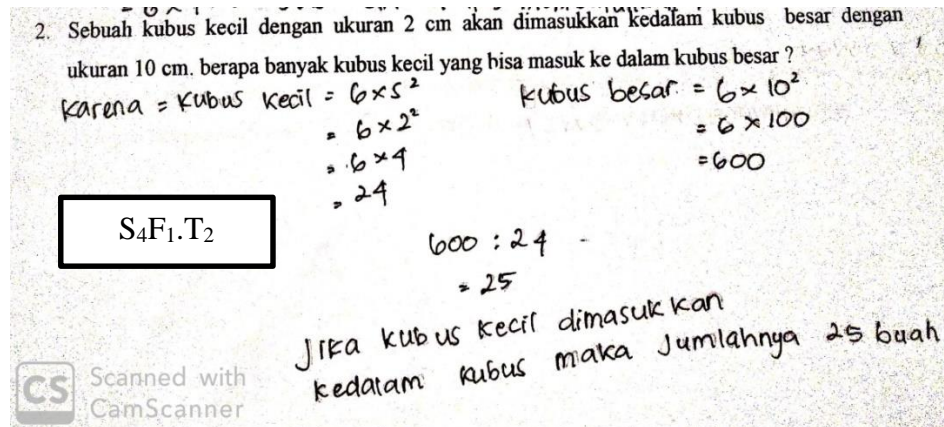 2. Sebuah kubus kecil dengan ukuran 2 cm akan dimasukkan kedalam kubus besar dengan
ukuran 10 cm. berapa banyak kubus kecil yang bisa masuk ke dalam kubus besar ?
Karena = Kubus kecil = 6×s²
= 6×2²
= 6×4
= 24
kubus besar = 6×10²
= 6×100
=600
S₄F₁.T₂
600 : 24
= 25
Jika kubus kecil dimasukkan
kedalam kubus maka Jumlahnya 25 buah
CS Scanned with
CamScanner